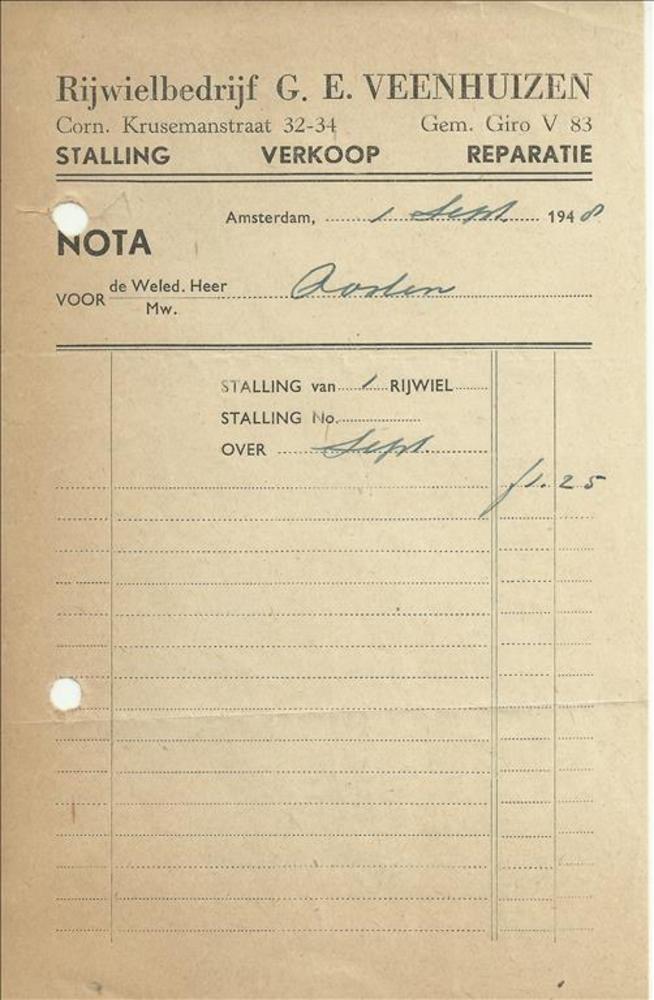 Rijwielbedrijf G. E. VEENHUIZEN
Corn. Krusemanstraat 32-34 Gem. Giro V 83
STALLING VERKOOP REPARATIE
Amsterdam, 1 Sept. 1948
NOTA
VOOR de Weled. Heer
Mw.
STALLING van 1 RIJWIEL
STALLING No.
OVER Sept.
f 1.25